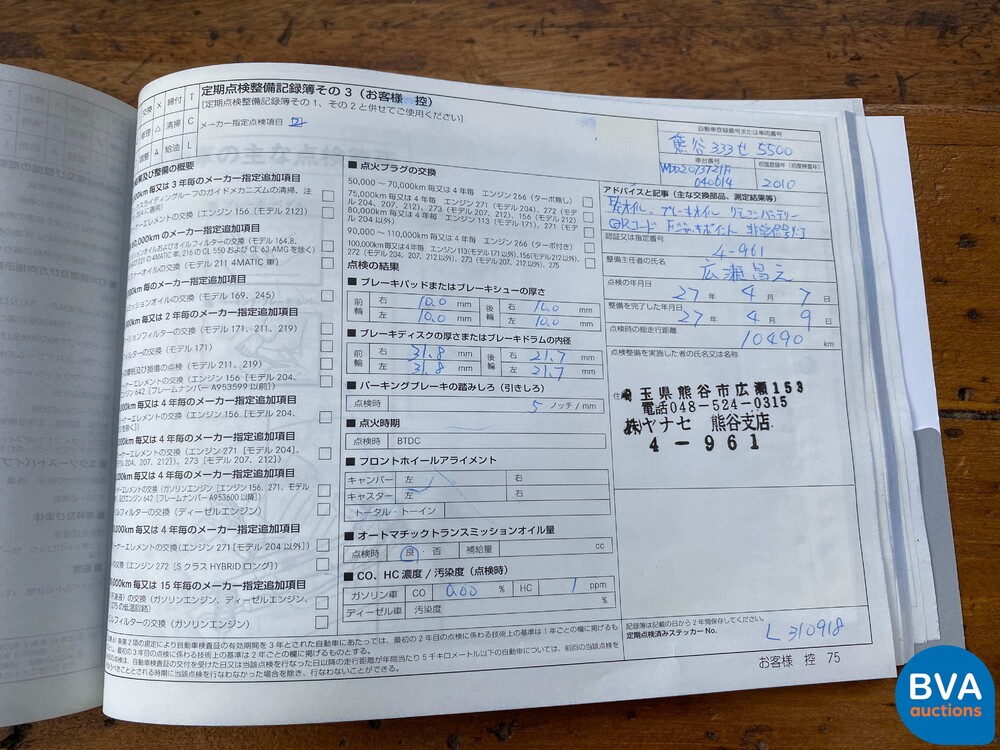 交換 × 締付 T
修理 △ 清掃 C
調整 A 給油 L
定期点検整備記録簿その3（お客様 控）
[定期点検整備記録簿その1、その2と併せてご使用ください]
メーカー指定点検項目
結果及び整備の概要
000km毎又は3年毎のメーカー指定追加項目
スライディングルーフのガイドメカニズムの清掃、注
204に適用)
ーエレメントの交換 (エンジン 156 [モデル 212])
60,000kmのメーカー指定追加項目
ションオイルおよびオイルフィルターの交換 (モデル 164.8、
ァーオイルの交換 (モデル 211 4MATIC 車)
km毎のメーカー指定追加項目
ミッションオイルの交換 (モデル 169、245)
km毎又は2年毎のメーカー指定追加項目
ションフィルターの交換 (モデル 171、211、219)
ィルターの交換 (モデル 171)
の摩耗及び損傷の点検 (モデル 211、219)
ーナーエレメントの交換 (エンジン 156 [モデル 204、
エンジン 642 [フレームナンバー A953599 以前])
km毎又は4年毎のメーカー指定追加項目
ーナーエレメントの交換 (エンジン 156 [モデル 204、
を除く])
000km毎又は4年毎のメーカー指定追加項目
ナーエレメントの交換 (エンジン 271 [モデル 204]、
204、207、212])、273 [モデル 207、212])
000km毎又は4年毎のメーカー指定追加項目
ーナーエレメントの交換 (ガソリンエンジン [エンジン 156、271、モデル
及びエンジン 642 [フレームナンバー A953600 以降])
ルフィルターの交換 (ディーゼルエンジン)
,000km毎又は4年毎のメーカー指定追加項目
ーナーエレメントの交換 (エンジン 271 [モデル 204 以外])
の交換 (エンジン 272 [S クラス HYBRID ロング])
km毎又は15年毎のメーカー指定追加項目
液) の交換 (ガソリンエンジン、ディーゼルエンジン、
275 の低温回路)
ルフィルターの交換 (ガソリンエンジン)
■ 点火プラグの交換
50,000 ～ 70,000km 毎又は4年毎 エンジン 266 (ターボ無し)
75,000km毎又は4年毎 エンジン 271 (モデル 204)、272 (モデル 204、207、212)、273 (モデル 207、212)、156 (モデル 212)
80,000km毎又は4年毎 エンジン 113 (モデル 171)、271 (モデル 204 以外)
90,000 ～ 110,000km毎又は4年毎 エンジン 266 (ターボ付き)
100,000km毎又は4年毎 エンジン 113(モデル 171 以外)、156(モデル 212 以外)、
272 (モデル 204、207、212 以外)、273 (モデル 207、212 以外)、275
点検の結果
■ ブレーキパッドまたはブレーキシューの厚さ
前輪 右 10.0 mm 後輪 右 10.0 mm
左 10.0 mm 左 10.0 mm
■ ブレーキディスクの厚さまたはブレーキドラムの内径
前輪 右 31.8 mm 後輪 右 21.7 mm
左 31.8 mm 左 21.7 mm
■ パーキングブレーキの踏みしろ（引きしろ）
点検時 5 ノッチ / mm
■ 点火時期
点検時 BTDC
■ フロントホイールアライメント
キャンバー 左 右
キャスター 左 右
トータル・トーイン
■ オートマチックトランスミッションオイル量
点検時 良・否 補給量 cc
■ CO、HC 濃度 / 汚染度（点検時）
ガソリン車 CO 0.00 % HC 1 ppm
ディーゼル車 汚染度 %
自動車登録番号または車両番号
熊谷 333 せ 5500
車台番号
初度登録年 (初度検査年)
2010
アドバイスと記事 (主な交換部品、測定結果等)
ブレーキオイル リモコンバッテリー
QRコード
認証又は指定番号
4-961
整備主任者の氏名
広瀬昌之
点検の年月日
27 年 4 月 7 日
整備を完了した年月日
27 年 4 月 9 日
点検時の総走行距離
10490 km
点検整備を実施した者の氏名又は名称
埼玉県熊谷市広瀬153
電話048-524-0315
㈱ヤナセ 熊谷支店
4-961
記録簿は記載の日から2年間保存してください。
定期点検済みステッカー No.
L 310918
お客様 控 75
BVA
auctions